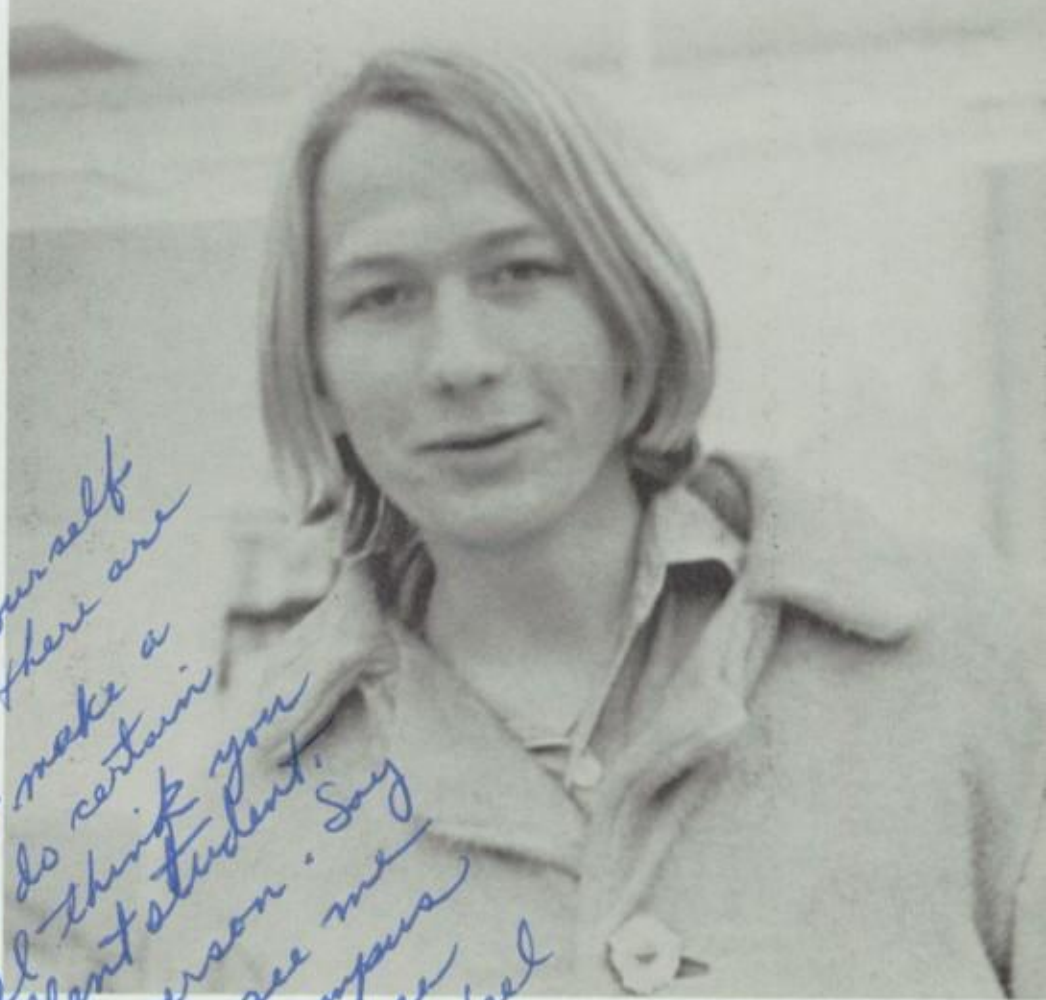 ourself
there are
make a
do certain
I think you
lent student.
erson. Say
see me
mpus
eel